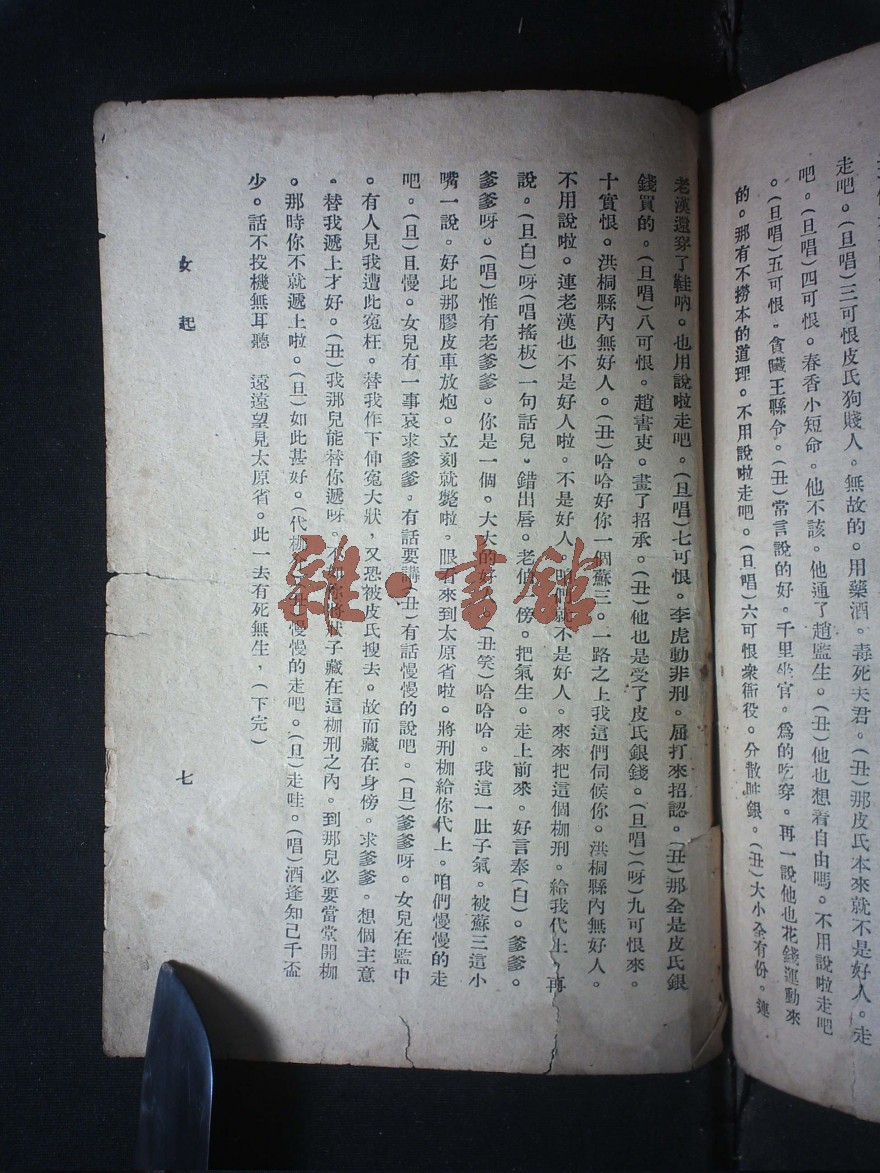 走吧。(旦唱)三可恨皮氏狗賤人。無故的。用藥酒。毒死夫君。(丑)那皮氏本來就不是好人。走
吧。(旦唱)四可恨。春香小短命。他不該。他通了趙監生。(丑)他也想着自由嗎。不用說啦走吧
。(旦唱)五可恨。貪贓王縣令。(丑)常言說的好。千里坐官。爲的吃穿。再一說他也花錢運動來
的。那有不撈本的道理。不用說啦走吧。(旦唱)六可恨衆衙役。分散贓銀。(丑)大小全有份。連
老漢還穿了鞋吶。也用說啦走吧。(旦唱)七可恨。李虎動非刑。屈打來招認。(丑)那全是皮氏銀
錢買的。(旦唱)八可恨。趙書吏。畫了招承。(丑)他也是受了皮氏銀錢。(旦唱)(呀)九可恨來。
十實恨。洪桐縣內無好人。(丑)哈哈好你一個蘇三。一路之上我這們伺候你。洪桐縣內無好人。
不用說啦。連老漢也不是好人啦。不是好人。咱們就不是好人。來來把這個枷刑。給我代上。再
說。(旦白)呀(唱搖板)一句話兒。錯出唇。老伯 傍。把氣生。走上前來。好言奉(白)。爹爹。
爹爹呀。(唱)惟有老爹爹。你是一個。大大的好人。(丑笑)哈哈哈。我這一肚子氣。被蘇三這小
嘴一說。好比那膠皮車放炮。立刻就斃啦。眼看來到太原省啦。將刑枷給你代上。咱們慢慢的走
吧。(旦)且慢。女兒有一事哀求爹爹。有話要講(丑)有話慢慢的說吧。(旦)爹爹呀。女兒在監中
。有人見我遭此冤枉。替我作下伸冤大狀，又恐被皮氏搜去。故而藏在身傍。求爹爹。想個主意
。替我遞上才好。(丑)我那兒能替你遞呀。不 你將狀子藏在這枷刑之內。到那兒必要當堂開枷
。那時你不就遞上啦。(旦)如此甚好。(代枷 丑)慢慢的走吧。(旦)走哇。(唱)酒逢知己千盃
少。話不投機無耳聽　遠遠望見太原省。此一去有死無生，(下完)
女 起 七
雜·書館